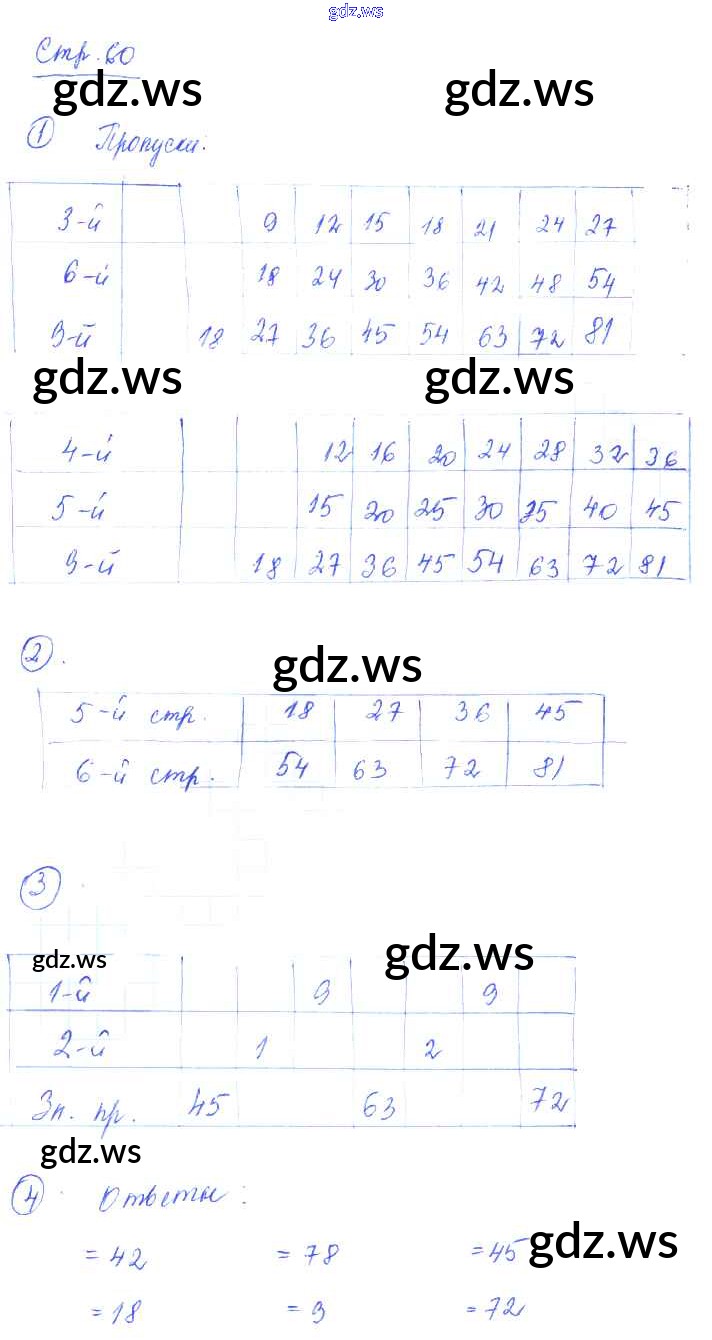 gdz.ws
Стр. 60
gdz.ws gdz.ws
1 Пропуски:
3-й 9 12 15 18 21 24 27
6-й 18 24 30 36 42 48 54
9-й 18 27 36 45 54 63 72 81
gdz.ws gdz.ws
4-й 12 16 20 24 28 32 36
5-й 15 20 25 30 35 40 45
9-й 18 27 36 45 54 63 72 81
2.
gdz.ws
5-й стр. 18 27 36 45
6-й стр. 54 63 72 81
3
gdz.ws gdz.ws
1-й 9 9
2-й 1 2
Зн. пр. 45 63 72
gdz.ws
4. Ответы:
= 42 = 78 = 45
gdz.ws
= 18 = 9 = 72